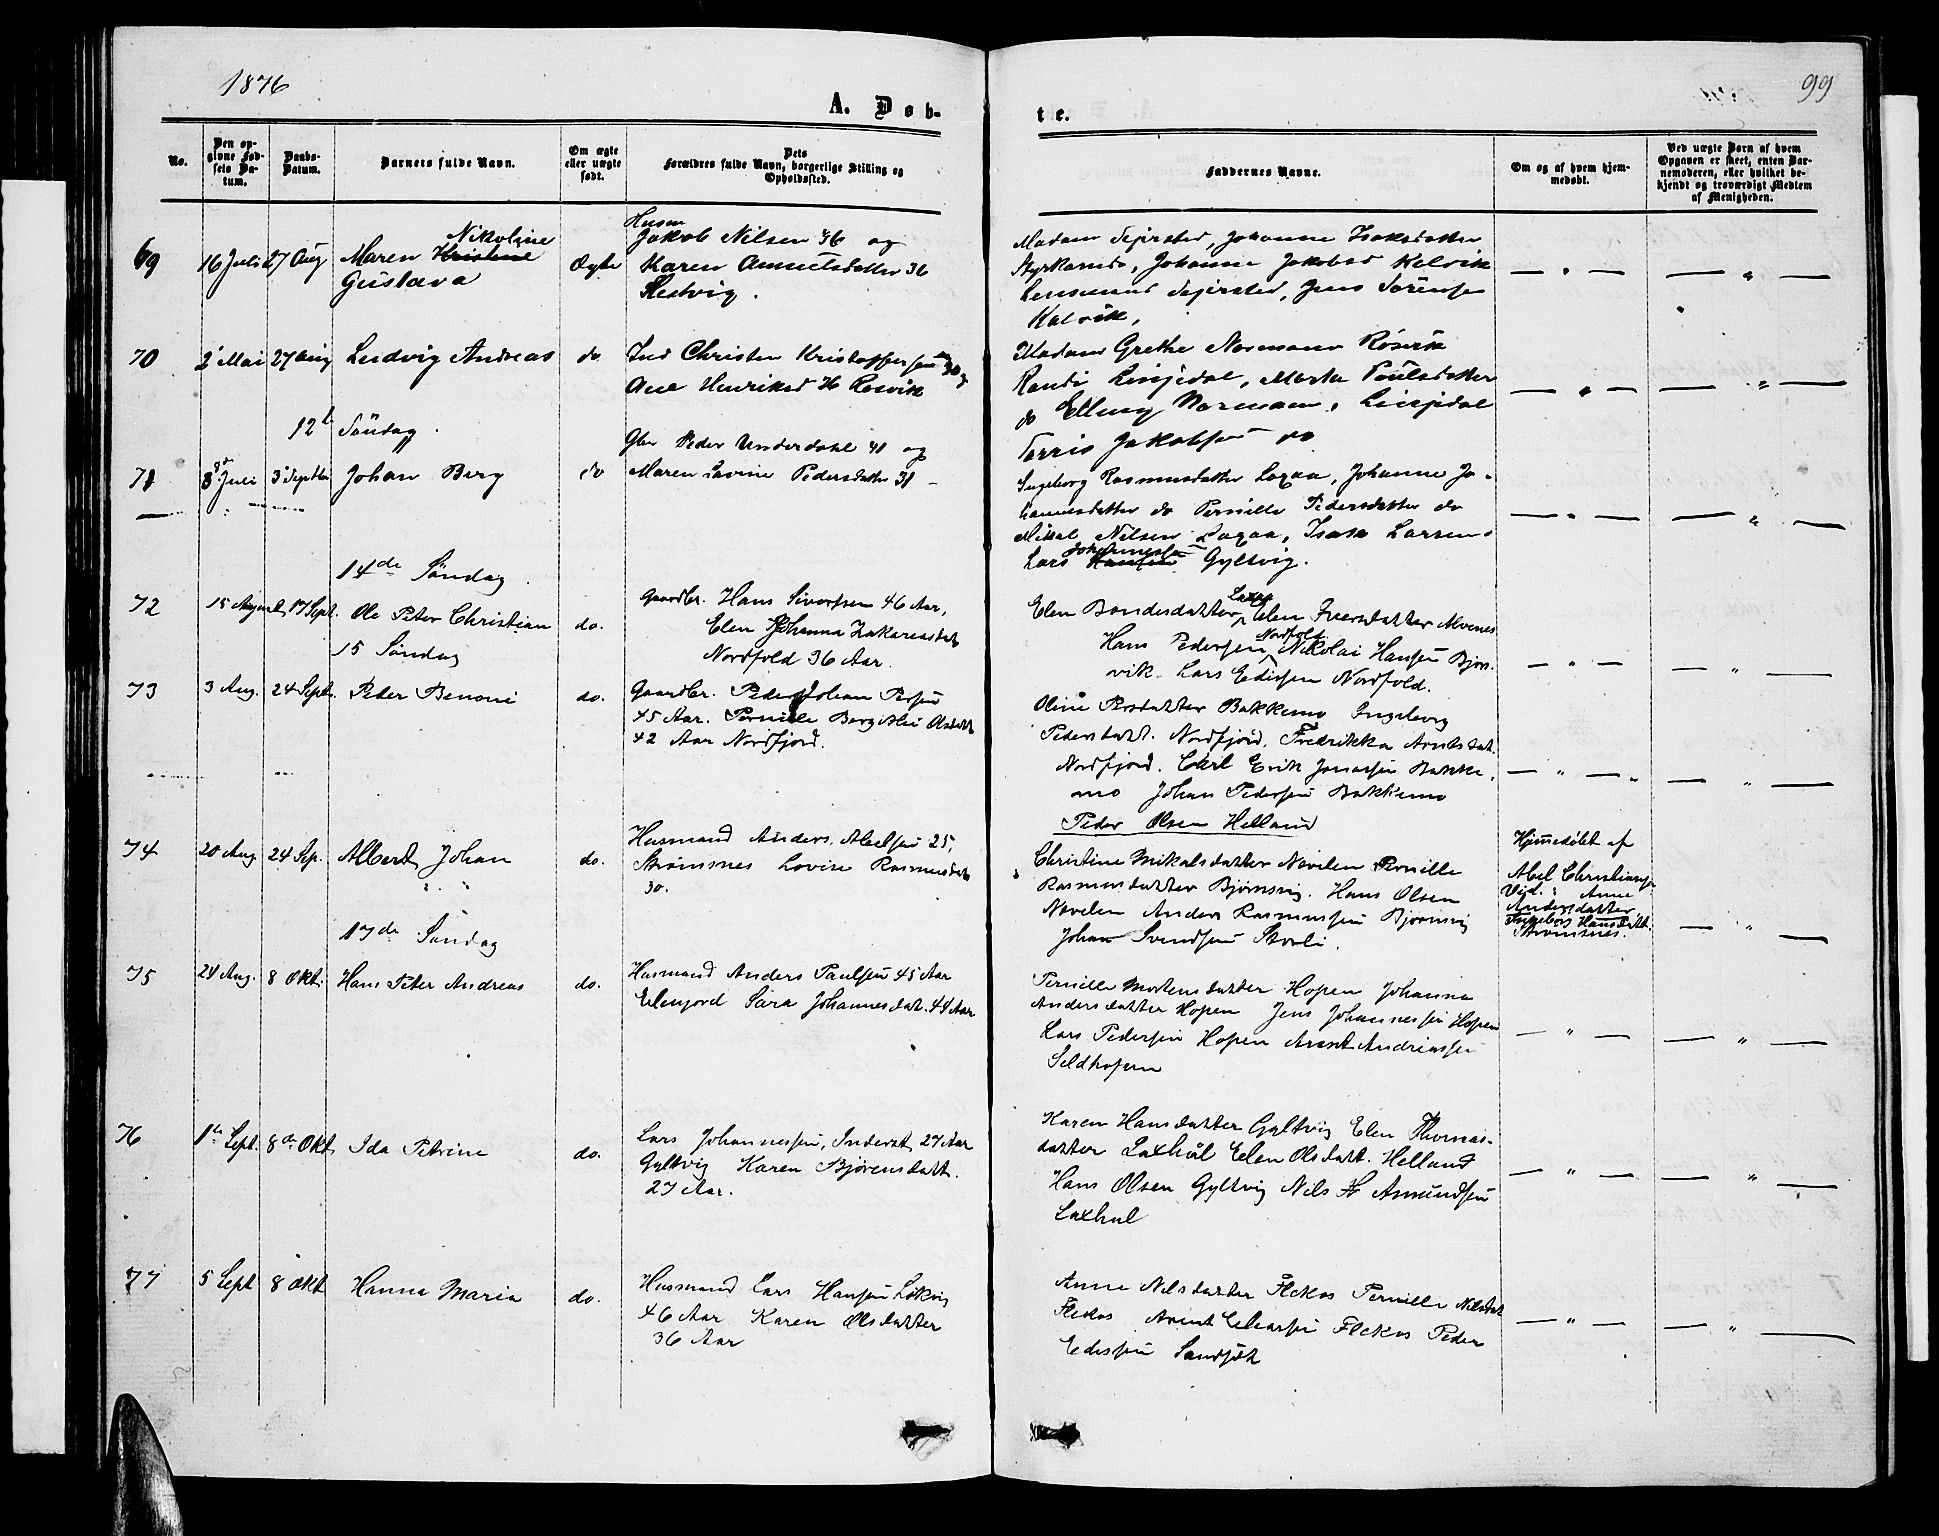 1876
99
A. Døb-
te.
No.
Den op-
givne Fød-
sels Da-
tum.
Daabs-
Datum.
Barnets fulde Navn.
Om ægte
eller uægte
født.
Dets
Forældres fulde Navn, borgerlige Stilling og
Opholdssted.
Faddernes Navne.
Om og af hvem hjem-
medøbt.
Ved uægte Børn af hvem
Opgaven er skeet, enten Bar-
nemoderen, eller hvilket be-
kjendt og troværdigt Medlem
af Menigheden.
69
16 Juli
27 Aug
Nikoline
Maren Kristine
Gustava
Ægte
Husm
Jakob Nilsen 36 og
Karen 36
Madam Johanne Isaksdatter
Johanne Jakobsd Kelvik
Lensmand Jens Sørensen
Kalvik,
70
2 Mai
27 Aug
Ludvig Andreas
do
Ind Christen Kristoffersen
Ane Henriksd Røsvik
Madam Grethe Normann Røsvik
Randi Linjedal, Marta Poulsdatter
do Elling Normann, Linjedal
Torris Jakobsen do
12te Söndag.
71
8de Juli
3 Septbr
Johan Berg
do
Gbr Peder Underdahl 41 og
Maren Lavine Pedersdatter 31
Ingeborg Rasmusdatter Laxaa, Johanne Jo-
hannesdatter do Pernille Pedersdatter do
Mikal Nilsen Laxaa, Isak Larsen
Johannessen
Lars Hansen Gyltvig.
14de Søndag.
72
15 August
17 Sept.
Ole Peter Christian
do.
Gaardbr. Hans Sivertsen 46 Aar,
Elen Johanna Zakariasdat
Nordfold 36 Aar.
Elen Bendixdatter, Elen Iversdatter Alvenes
Nordfold
Hans Pedersen, Nikolai Hansen Bjørs-
vik. Lars Edissen Nordfold.
15 Søndag
73
3 Aug.
24 Sept.
Peder Benoni
do.
Gaardbr. Peder Johan Persen
45 Aar. Pernille Olsdatt
42 Aar Nordfjord.
Oline Persdatter Bakkemo Ingeborg
Pedersdatt. Nordfjord, Fredrikka Arntsdat.
Nordfjord. Carl Erik Jonassen Bakke-
mo Johan Pedersen Bakkemo
Peder Olsen Helland
74
20 Aug
24 Sep.
Albert Johan
do.
Husmand Anders Abelsen 25,
Strømsnes Lovise Rasmusdat
30.
Christine Mikalsdatter Nøvelen Pernille
Rasmusdatter Bjørnsvig. Hans Olsen
Nøvelen Anders Rasmussen Bjørnsvig
Johan Svendsen Storli.
Hjemmedøbt af
Abel Christiansen
Vid. Anne
Andersdatter
Ingeborg Hansdatt.
Strømsnes.
17de Søndag
75
24 Aug.
8 Okt.
Hans Peter Andreas
do.
Husmand Anders Paulsen 45 Aar
Elenjord Sara Johannesdat. 44 Aar
Pernille Mortensdatter Hopen Johanna
Andersdatter Hopen Jens Johannessen Hopen
Lars Pedersen Hopen Arent Andreassen
76
1te Sept.
8de Okt.
Ida Petrine
do.
Lars Johannessen, Inderst 27 Aar
Gyltvig Karen Bjørensdatt.
27 Aar.
Karen Hansdatter Gyltvig Elen Thomas-
datter Laxhul Elen Olsdatt. Helland
Hans Olsen Gyltvig Nils H Amundsen
Laxhul
77
5 Sept
8 Okt
Hanna Maria
do.
Husmand Lars Hansen Løkvig
46 Aar Karen Olsdatter
36 Aar
Anne Nilsdatter Flekos Pernille Nilsdat
Flekos Arent Eliassen Flekos Peder
Edissen